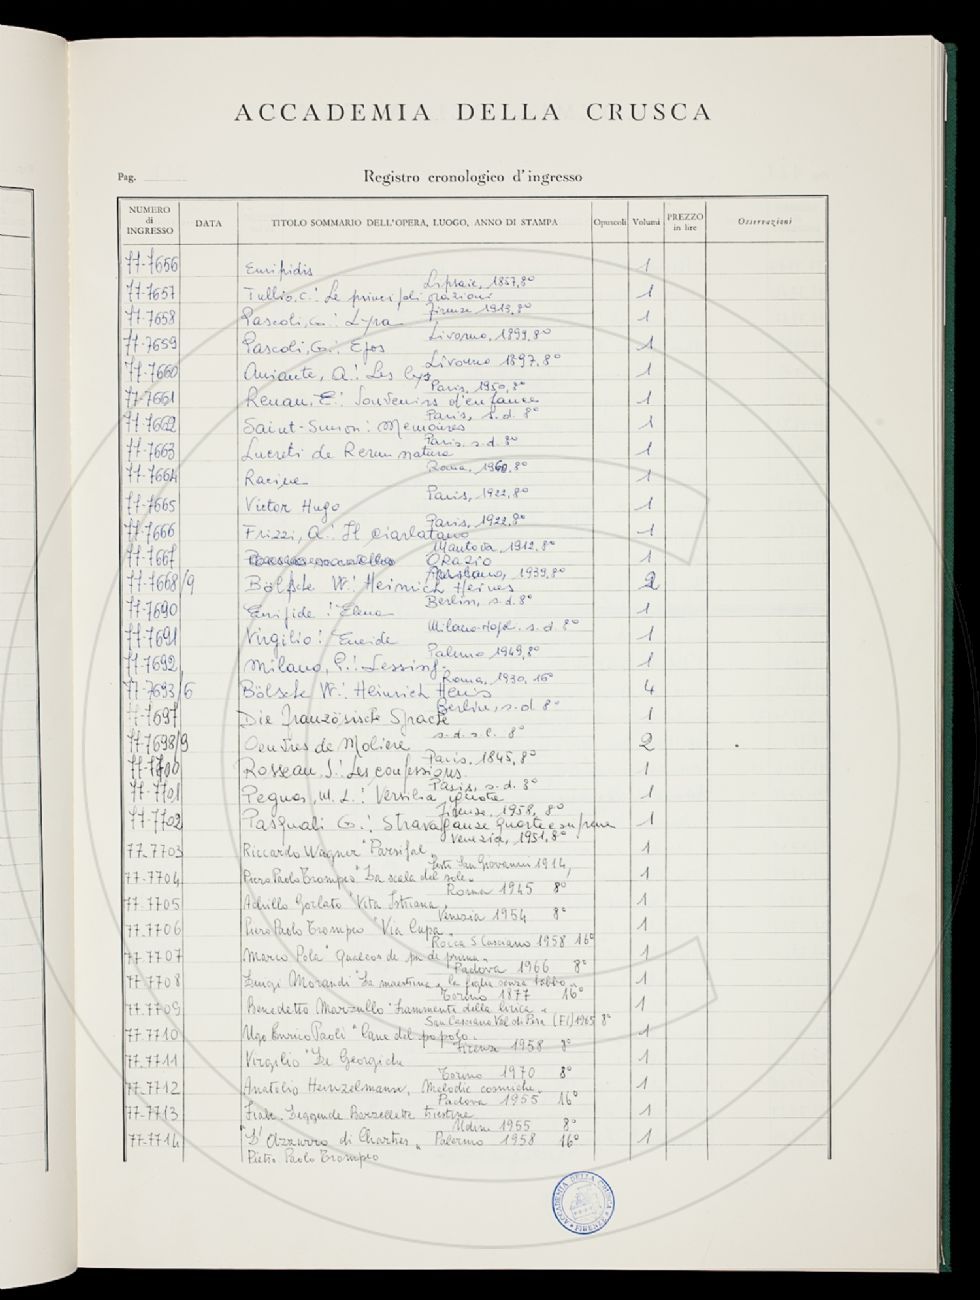 ACCADEMIA DELLA CRUSCA
Pag. Registro cronologico d'ingresso
NUMERO di INGRESSO DATA TITOLO SOMMARIO DELL'OPERA, LUOGO, ANNO DI STAMPA Opuscoli Volumi PREZZO in lire Osservazioni
77-7656 Euripidis 1
Lipsiae, 1857, 8°
77-7657 Tullio, C.: Le principali orazioni 1
Firenze 1913, 8°
77-7658 Pascoli, G.: Lyra 1
Livorno, 1899, 8°
77-7659 Pascoli, G.: Epos 1
Livorno 1897, 8°
77-7660 Aniante, A.: Les lys 1
Paris, 1950, 8°
77-7661 Renan, E.: Souvenirs d'enfance 1
Paris, s.d. 8°
77-7662 Saint-Simon: Memoires 1
Paris, s.d. 8°
77-7663 Lucreti de Rerum natura 1
Roma, 1960, 8°
77-7664 Racine 1
Paris, 1922, 8°
77-7665 Victor Hugo 1
Paris, 1922, 8°
77-7666 Frizzi, A.: Il ciarlatano 1
Mantova, 1912, 8°
77-7667 ORAZIO 1
1939, 8°
77-7668/9 Bölsche W.: Heinrich Heines 2
Berlin, s.d. 8°
77-7690 Euripide: Elena 1
Milano-Napl. s.d. 8°
77-7691 Virgilio: Eneide 1
Palermo 1949, 8°
77-7692 Milano, P.: Lessing. 1
Roma, 1930, 16°
77-7693/6 Bölsche W.: Heinrich Heins 4
Berlin, s.d. 8°
77-7697 Die französische Sprache 1
s.d. s.l. 8°
77-7698/9 Oeuvres de Moliere 2
Paris, 1845, 8°
77-7700 Rosseau, J.: Les confessions 1
Paris, s.d. 8°
77-7701 Pegnos, M. L.: Versilia ignota 1
Firenze, 1958, 8°
77-7702 Pasquali G.: Stravaganze quarte e supreme 1
Venezia, 1951, 8°
77-7703 Riccardo Wagner "Parsifal" 1
Sesto San Giovanni 1914,
77-7704 Piero Paolo Trompeo "La scala del sole" 1
Roma 1945 8°
77-7705 Adrillo Gorlato "Vita Istriana" 1
Venezia 1954 8°
77-7706 Piero Paolo Trompeo "Via Cupa" 1
Rocca S. Casciano 1958 16°
77-7707 Marco Pola "Qualcos de pu de prima" 1
Padova 1966 8°
77-7708 Luigi Morandi "La maestrina, la foglia senza 1
Torino 1877 16°
77-7709 Benedetto Marzullo "Frammenti della lirica" 1
San Casciano Val di Pesa (FI) 1965 8°
77-7710 Ugo Enrico Paoli "Cane del popolo" 1
Firenze 1958 8°
77-7711 Virgilio "Le Georgiche 1
Torino 1970 8°
77-7712 Anatolio Heinzelmann, Melodie cosmiche. 1
Padova 1955 16°
77-7713 Fiabe Leggende Barzellette Triestine 1
Udine 1955 8°
77-7714 "L'Azzurro di Chartres" Palermo 1958 16° 1
Pietro Paolo Trompeo
ACCADEMIA DELLA CRUSCA FIRENZE